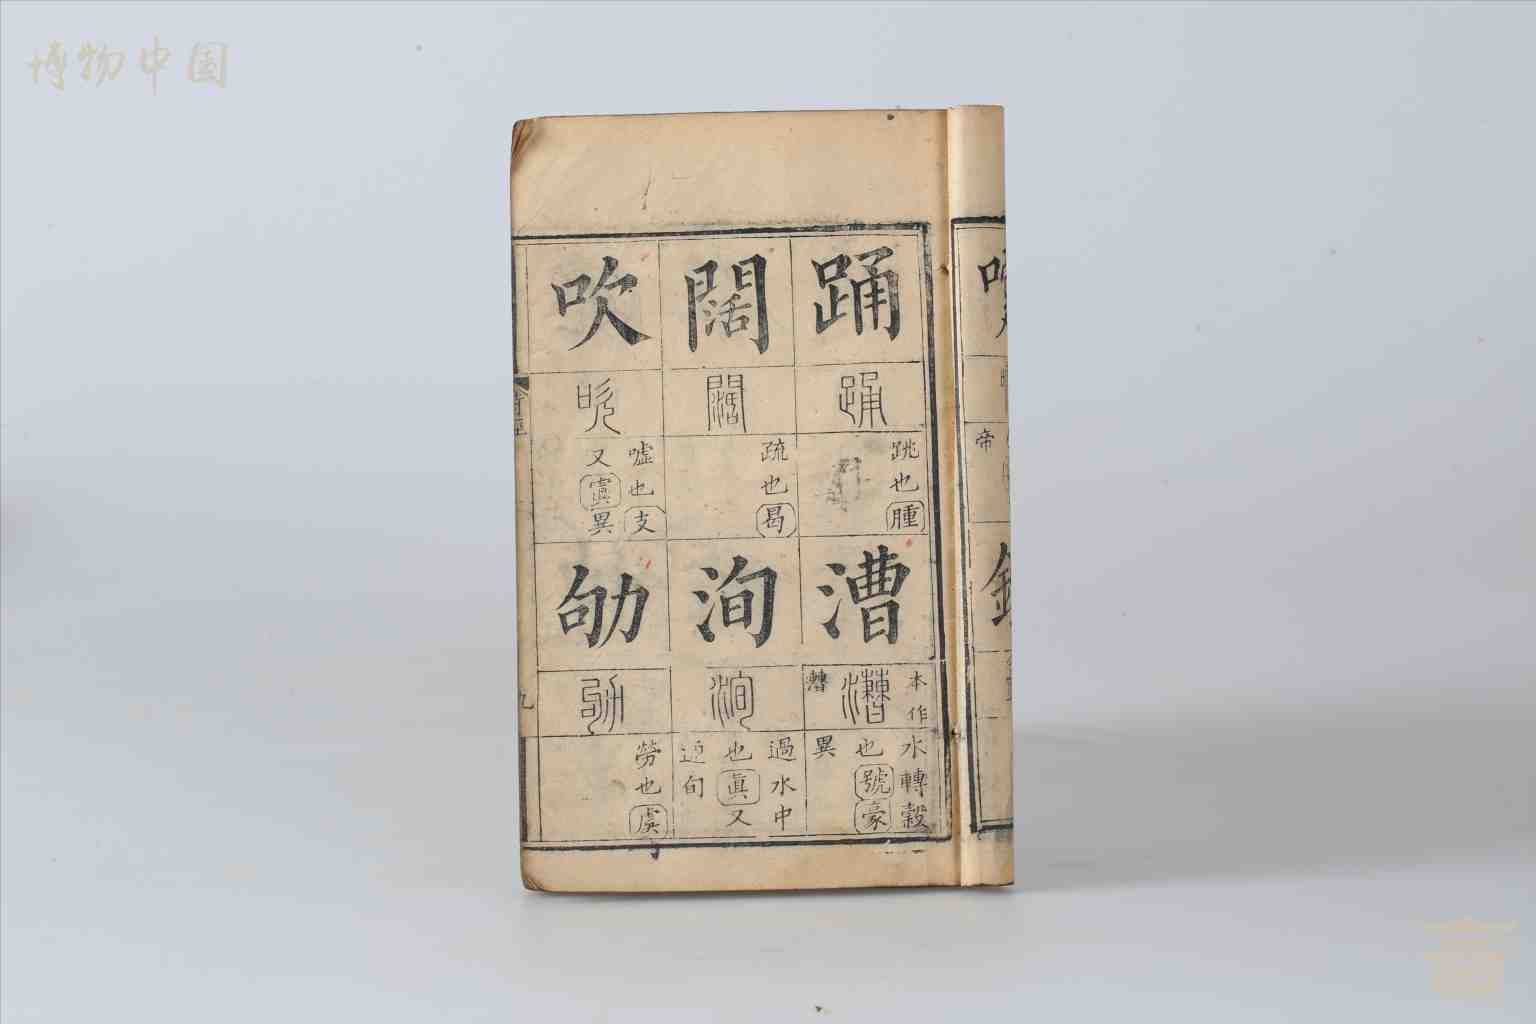 博物中国
踊
踊
跳也腫
闊
闊
疏也曷
吹
吹
噓也支
又寘異
漕
本作
漕
水轉穀
也號豪
異
洵
洵
過水中
也眞又
旬
劬
劬
勞也虞
詩經
九
帝